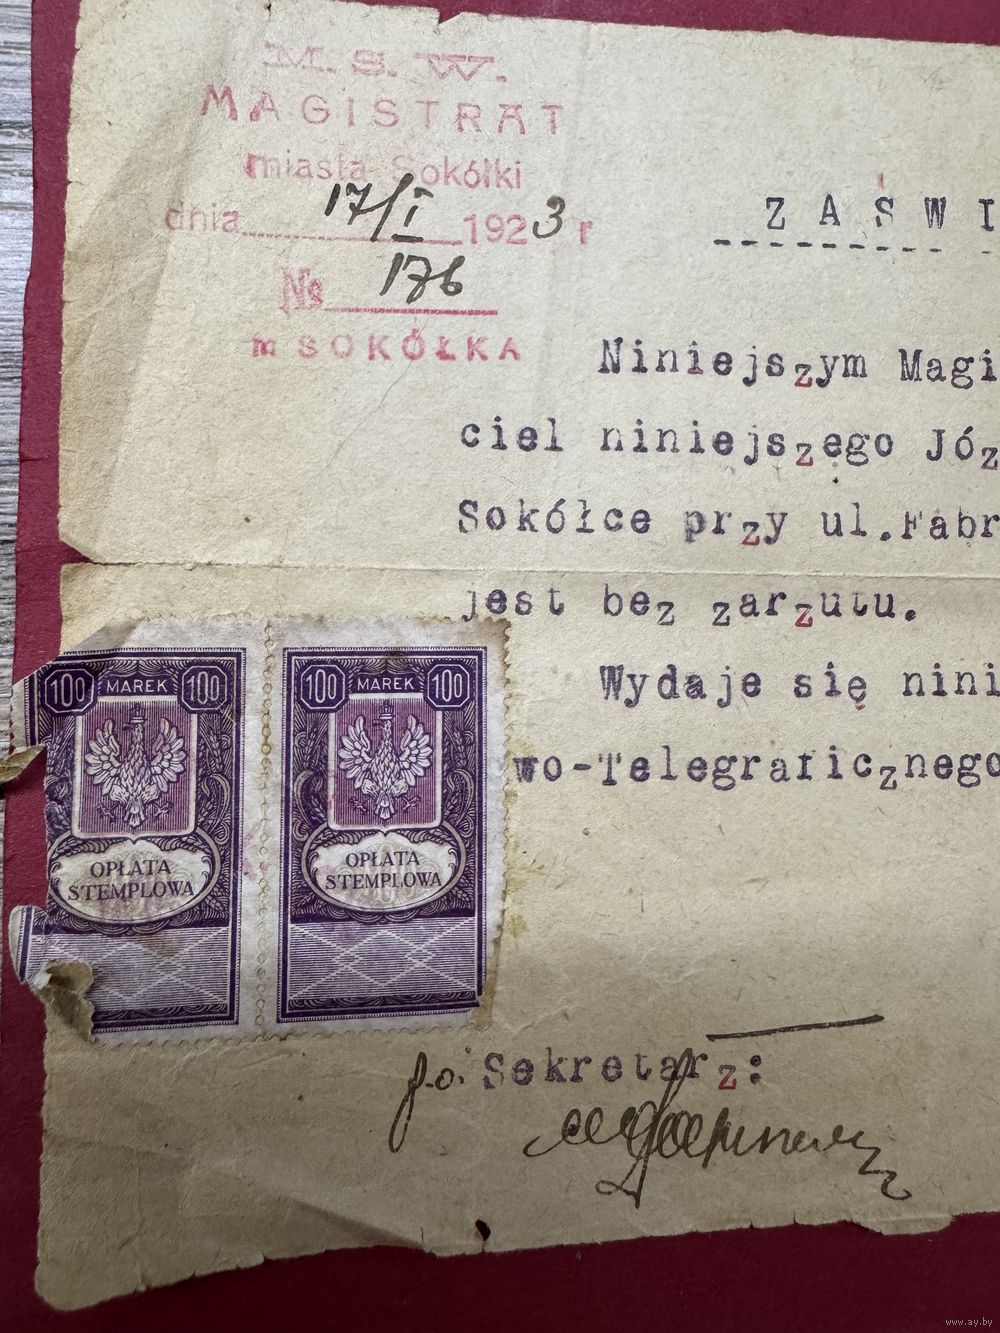 M. S. W.
MAGISTRAT
miasta Sokółki
dnia 17/I 1923 r
№ 176
m SOKÓŁKA
ZAŚWI
Niniejszym Magi
ciel niniejszego Józ
Sokółce przy ul.Fabr
jest bez zarzutu.
Wydaje się nini
wo-Telegraficznego
100 MAREK 100
OPŁATA
STEMPLOWA
100 MAREK 100
OPŁATA
STEMPLOWA
p.o. Sekretarz:
www.ay.by